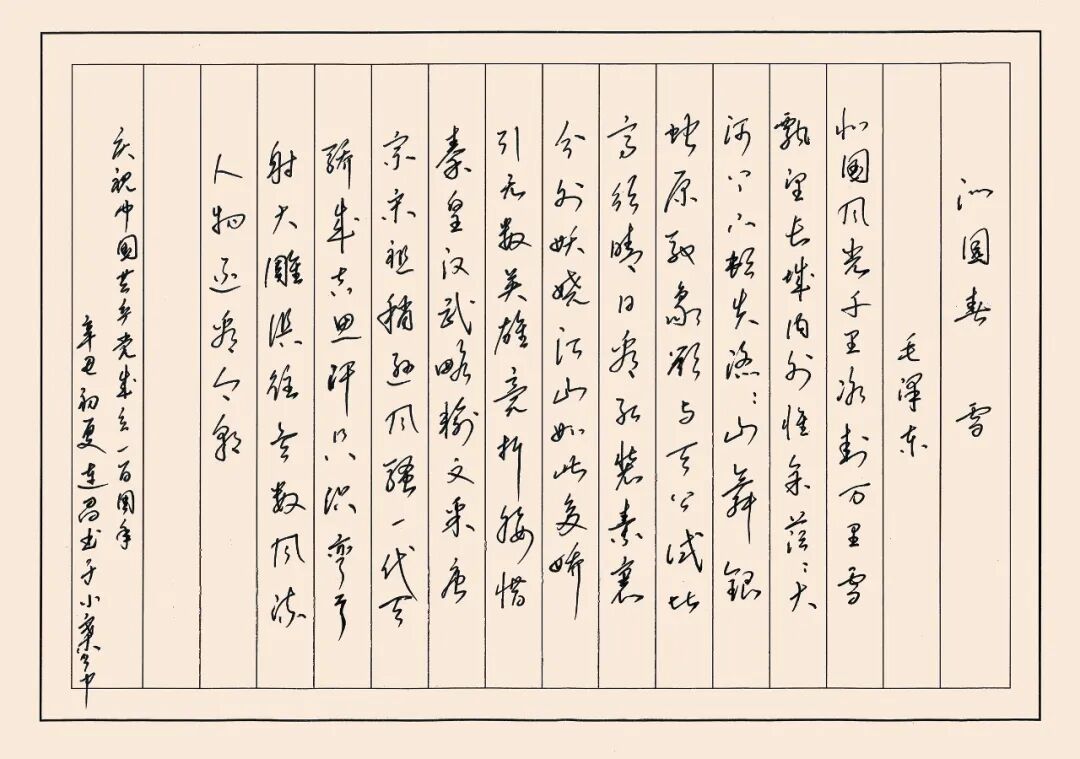 沁园春 雪
毛泽东
北国风光千里冰封万里雪
飘望长城内外惟余莽〻大
河上下顿失滔〻山舞银
蛇原驰象欲与天公试比
高须晴日看红装素裹
分外妖娆江山如此多娇
引无数英雄竞折腰惜
秦皇汉武略输文采唐
宗宋祖稍逊风骚一代天
骄成吉思汗只识弯弓
射大雕俱往矣数风流
人物还看今朝
庆祝中国共产党成立一百周年
辛丑初夏连昌书于小